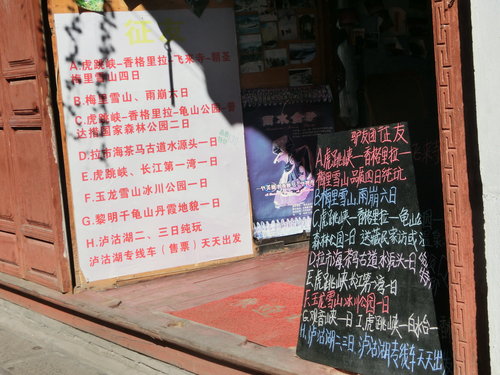 征友
A.虎跳峡-香格里拉-飞来寺-朝圣
梅里雪山四日
B.梅里雪山、雨崩六日
C.虎跳峡-香格里拉-龟山公园-普
达措国家森林公园二日
D.拉市海茶马古道水源头一日
E.虎跳峡、长江第一湾一日
F.玉龙雪山冰川公园一日
G.黎明千龟山丹霞地貌一日
H.泸沽湖二、三日纯玩
泸沽湖专线车（售票）天天出发
驴友团征友
A虎跳峡—香格里拉—
梅里雪山
四日纯玩
B梅里雪山,雨崩六日
C虎跳峡—香格里拉—龟山公
森林公园二日
D.拉市海茶马古道水源头一日
E虎跳峡长江第一湾一日
F.玉龙雪山冰川公园一日
G观音峡一日 I.虎跳峡—白水台一
H.泸沽湖二三日 泸沽湖专线车天天出